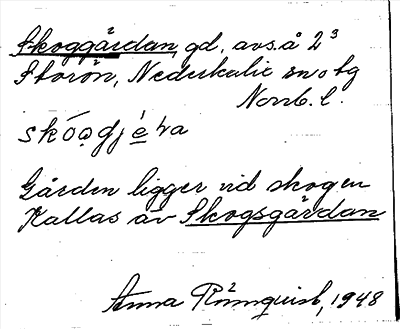 Skoggårdan, gd, avs. å 2³
Storön, Nederkalix sn o tg
Norrb. l.
Gården ligger vid skogen
Kallas äv Skogsgårdan
Anna Rönnquist, 1948